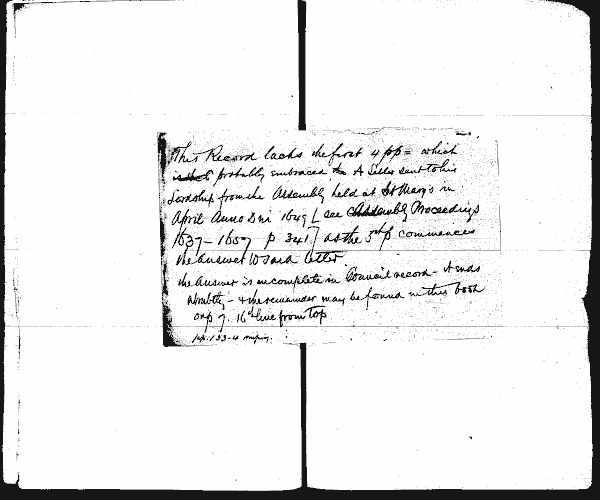 This Record lacks the first 4 pp = which
probably embraced A Letter sent to his
Lordship from the Assembly held at St Mary's in
April Anno Dni 1649 [see Assembly Proceedings
1637-1657 p 341] as the 5th p commences
the answer to said letter.
the Answer is incomplete in Council record - it ends
abruptly - & the remainder may be found in this book
on p 7. 16th line from top
pp. 133-4 missing.